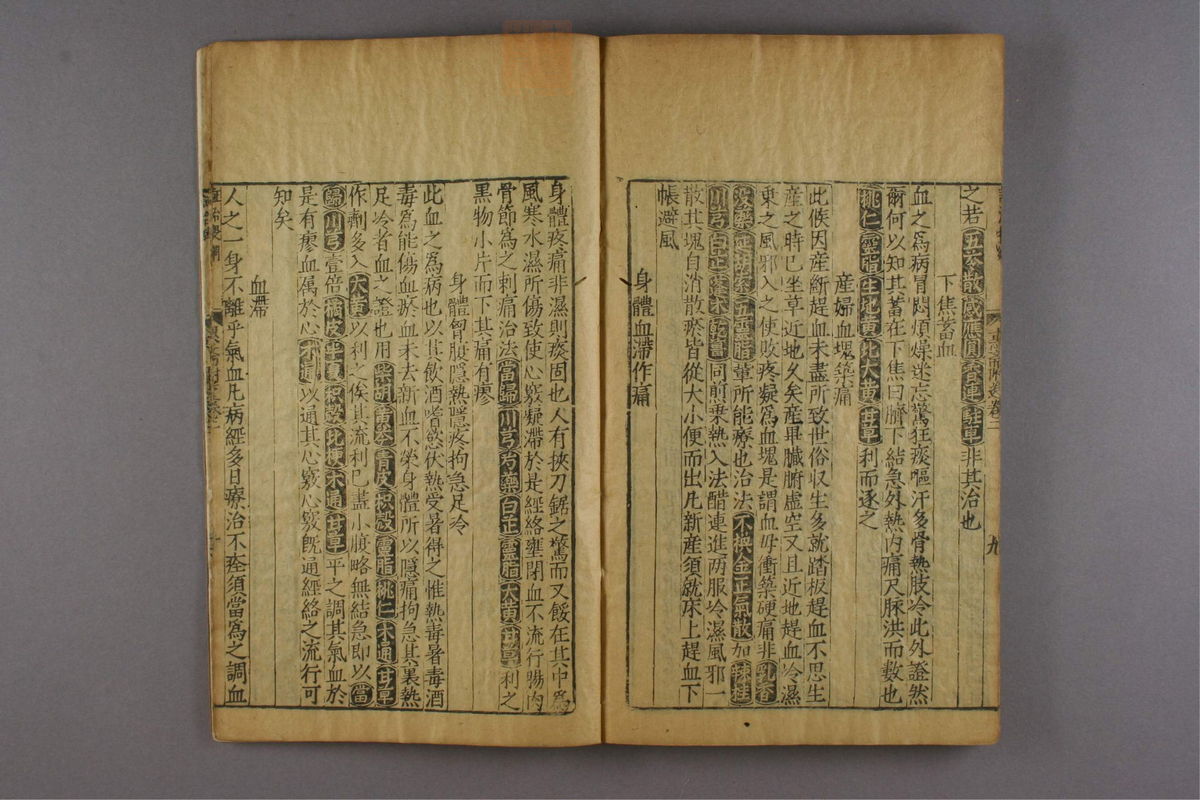 之若五苓散感應圓黃連駐車非其治也
下焦蓄血
血之為病冐悶煩燥迷忘驚狂痰嘔汗多骨熱肢冷此外證然
爾何以知其蓄在下焦曰臍下結急外熱内痛尺脉洪而數也
桃仁靈脂生地黃北大黃甘草利而逐之
産婦血塊築痛
此候因産斷趕血未盡所致世俗収生多就踏板趕血不思生
産之時已坐草近地久矣産畢臓腑虚空又且近地趕血冷濕
東之風邪入之使敗疼凝為血塊是謂血母衝築硬痛非乳香
没藥延胡索五靈脂輩所能療也治法不換金正氣散加辣桂
川芎白芷莪朮乾薑同煎乗熱入法醋連進两服冷濕風邪一
散其塊自消散瘀皆從大小便而出凡新産須就床上趕血下
帳避風
身體血滯作痛
身體疼痛非濕則痰固也人有挾刀鋸之驚而又餒在其中為
風寒水濕所傷致使心竅凝滯於是經絡壅閉血不流行腸肉
骨節為之刺痛治法當歸川芎芍藥白芷靈脂大黃甘草利之
黒物小片而下其痛有瘳
身體胷腹隱熱隱疼拘急足冷
此血之為病也以其飲酒嗜慾伏熱受暑得之惟熱毒暑毒酒
毒為能傷血瘀血未去新血不榮身體所以隱痛拘急其裏熱
足冷者血之證也用柴胡黃芩青皮枳殼靈脂桃仁木通甘草
作劑多入大黃以利之俟其流利已盡小腹略無結急即以當
歸川芎壹倍橘皮半夏枳殼北梗木通甘草平之調其氣血於
是有瘳血属於心木通以通其心竅心竅既通經絡之流行可
知矣
血滯
人之一身不離乎氣血凡病經多日療治不痊須當為之調血